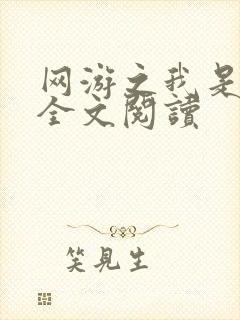 网游之我是
全文閱讀
笑見生